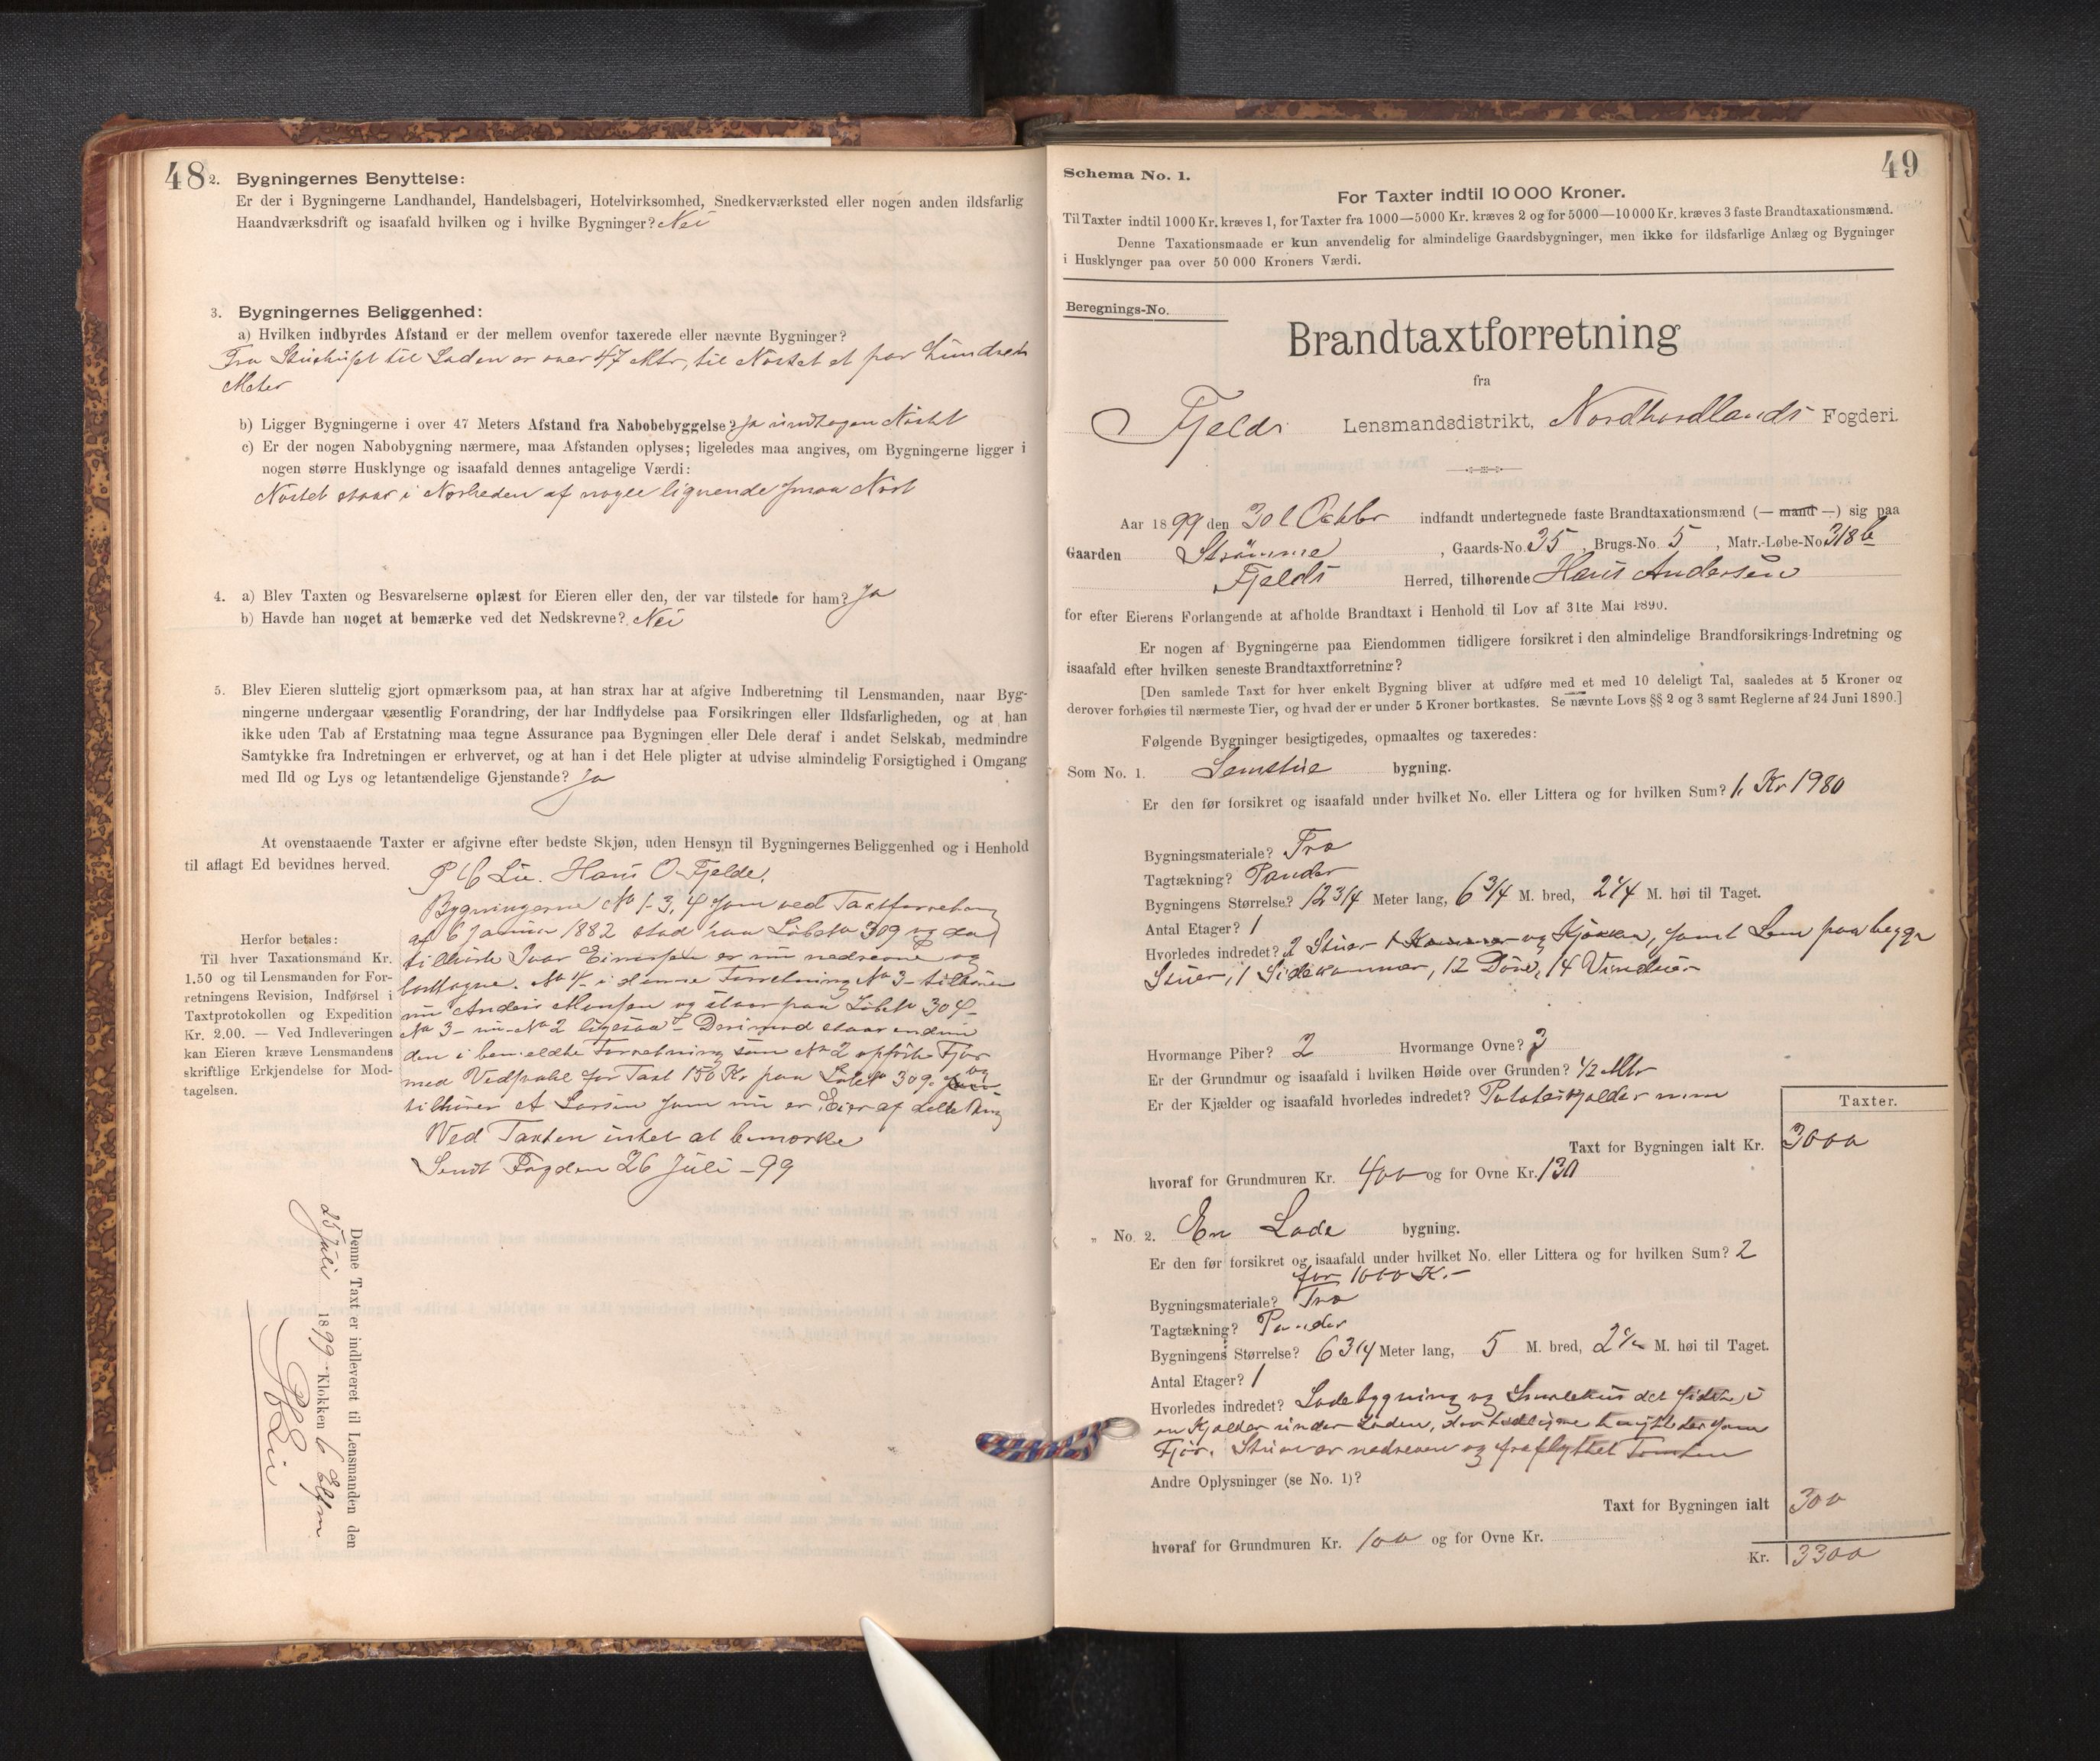 48
2. Bygningernes Benyttelse:
Er der i Bygningerne Landhandel, Handelsbageri, Hotelvirksomhed, Snedkerværksted eller nogen anden ildsfarlig
Haandværksdrift og isaafald hvilken og i hvilke Bygninger? Nei
3. Bygningernes Beliggenhed:
a) Hvilken indbyrdes Afstand er der mellem ovenfor taxerede eller nævnte Bygninger?
Fra Stuehuset til Laden er over 47 Mtr, til Nøstet et par hundrede
Meter
b) Ligger Bygningerne i over 47 Meters Afstand fra Nabobebyggelse? Ja undtagen Nøstet
c) Er der nogen Nabobygning nærmere, maa Afstanden oplyses; ligeledes maa angives, om Bygningerne ligger i
nogen større Husklynge og isaafald dennes antagelige Værdi:
Nøstet staar i Nærheden af nogle lignende smaa Nøst
4. a) Blev Taxten og Besvarelserne oplæst for Eieren eller den, der var tilstede for ham? Ja
b) Havde han noget at bemærke ved det Nedskrevne? Nei
5. Blev Eieren sluttelig gjort opmærksom paa, at han strax har at afgive Indberetning til Lensmanden, naar Byg-
ningerne undergaar væsentlig Forandring, der har Indflydelse paa Forsikringen eller Ildsfarligheden, og at han
ikke uden Tab af Erstatning maa tegne Assurance paa Bygningen eller Dele deraf i andet Selskab, medmindre
Samtykke fra Indretningen er erhvervet, og at han i det Hele pligter at udvise almindelig Forsigtighed i Omgang
med Ild og Lys og letantændelige Gjenstande? Ja
At ovenstaaende Taxter er afgivne efter bedste Skjøn, uden Hensyn til Bygningernes Beliggenhed og i Henhold
til aflagt Ed bevidnes herved.
Lie. Hans O Fjelde.
Bygningerne No 1-3, 4 som ved Taxtforretning
af 6 Januar 1882 stod paa Löbeno 309 og da
tilhørte Ivar Einarsen er nu nedrevne og
borttagne. No 4 i denne Forretning No 3 tilhører
nu Anders Monsen og staar paa Löbeno 304
No 3 nu No 2 ligesaa Derimod staar endnu
den i bemeldte Forretning som No 2 opførte Fjør
med Vedskale for Taxt 150 Kr paa Löbeno 309. og
tilhører A Larsen som nu er Eier af dette Brug
Ved Taxten intet at bemærke
Sendt Fogden 26 Juli -99
Herfor betales:
Til hver Taxationsmand Kr.
1.50 og til Lensmanden for For-
retningens Revision, Indførsel i
Taxtprotokollen og Expedition
Kr. 2.00. — Ved Indleveringen
kan Eieren kræve Lensmandens
skriftlige Erkjendelse for Mod-
tagelsen.
Denne Taxt er indleveret til Lensmanden den
25 Juli 1899 Klokken 6 Efm
Lie
49
Schema No. 1.
For Taxter indtil 10 000 Kroner.
Til Taxter indtil 1000 Kr. kræves 1, for Taxter fra 1000—5000 Kr. kræves 2 og for 5000—10 000 Kr. kræves 3 faste Brandtaxationsmænd.
Denne Taxationsmaade er kun anvendelig for almindelige Gaardsbygninger, men ikke for ildsfarlige Anlæg og Bygninger
i Husklynger paa over 50 000 Kroners Værdi.
Beregnings-No.
Brandtaxtforretning
fra
Fjelds Lensmandsdistrikt, Nordhordlands Fogderi.
Aar 1899 den 30 Oktbr indfandt undertegnede faste Brandtaxationsmænd (— mand —) sig paa
Gaarden Strömme, Gaards-No. 35, Brugs-No 5, Matr.-Løbe-No 318 b
Fjelds Herred, tilhørende Hans Andersen
for efter Eierens Forlangende at afholde Brandtaxt i Henhold til Lov af 31te Mai 1890.
Er nogen af Bygningerne paa Eiendommen tidligere forsikret i den almindelige Brandforsikrings-Indretning og
isaafald efter hvilken seneste Brandtaxtforretning?
[Den samlede Taxt for hver enkelt Bygning bliver at udføre med et med 10 deleligt Tal, saaledes at 5 Kroner og
derover forhøies til nærmeste Tier, og hvad der er under 5 Kroner bortkastes. Se nævnte Lovs §§ 2 og 3 samt Reglerne af 24 Juni 1890.]
Følgende Bygninger besigtigedes, opmaaltes og taxeredes:
Som No. 1. Lemstue bygning.
Er den før forsikret og isaafald under hvilket No. eller Littera og for hvilken Sum? 1. Kr 1980
Bygningsmateriale? Træ
Tagtækning? Pander
Bygningens Størrelse? 12 3/4 Meter lang, 6 3/4 M. bred, 2 1/4 M. høi til Taget.
Antal Etager? 1
Hvorledes indredet? 2 Stuer 1 Kammer og Kjøkken, samt Lem paa begge
Stuer, 1 Sidekammer, 12 Døre, 14 Vinduer
Hvormange Piber? 2 Hvormange Ovne? 3
Er der Grundmur og isaafald i hvilken Høide over Grunden? 1/2 Mtr
Er der Kjælder og isaafald hvorledes indredet? Poteteskjælder
Taxter.
Taxt for Bygningen ialt Kr. 3000
hvoraf for Grundmuren Kr. 400 og for Ovne Kr. 130
„ No. 2. En Lade bygning.
Er den før forsikret og isaafald under hvilket No. eller Littera og for hvilken Sum? 2
for 1000 K.-
Bygningsmateriale? Træ
Tagtækning? Pander
Bygningens Størrelse? 6 3/4 Meter lang, 5 M. bred, 2 1/2 M. høi til Taget.
Antal Etager? 1
Hvorledes indredet? Ladebygning og Smalehus det sidste i
en Kjælder under Laden,
Fjör. er nedreven og fraflyttet Tomten
Andre Oplysninger (se No. 1)?
Taxt for Bygningen ialt 300
hvoraf for Grundmuren Kr. 100 og for Ovne Kr.
Kr. 3300